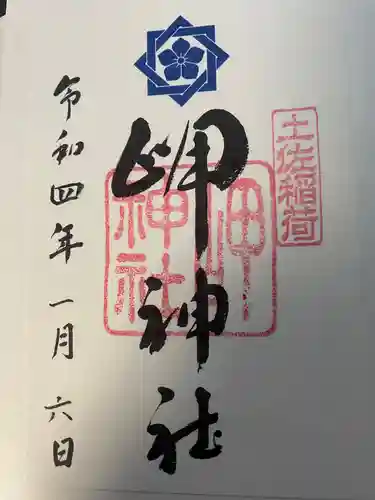 土佐稲荷
岬神社
岬神社
令和四年一月六日